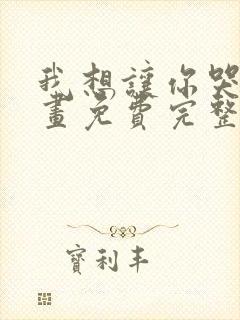 我想讓你哭
畫免費完整
寶利丰